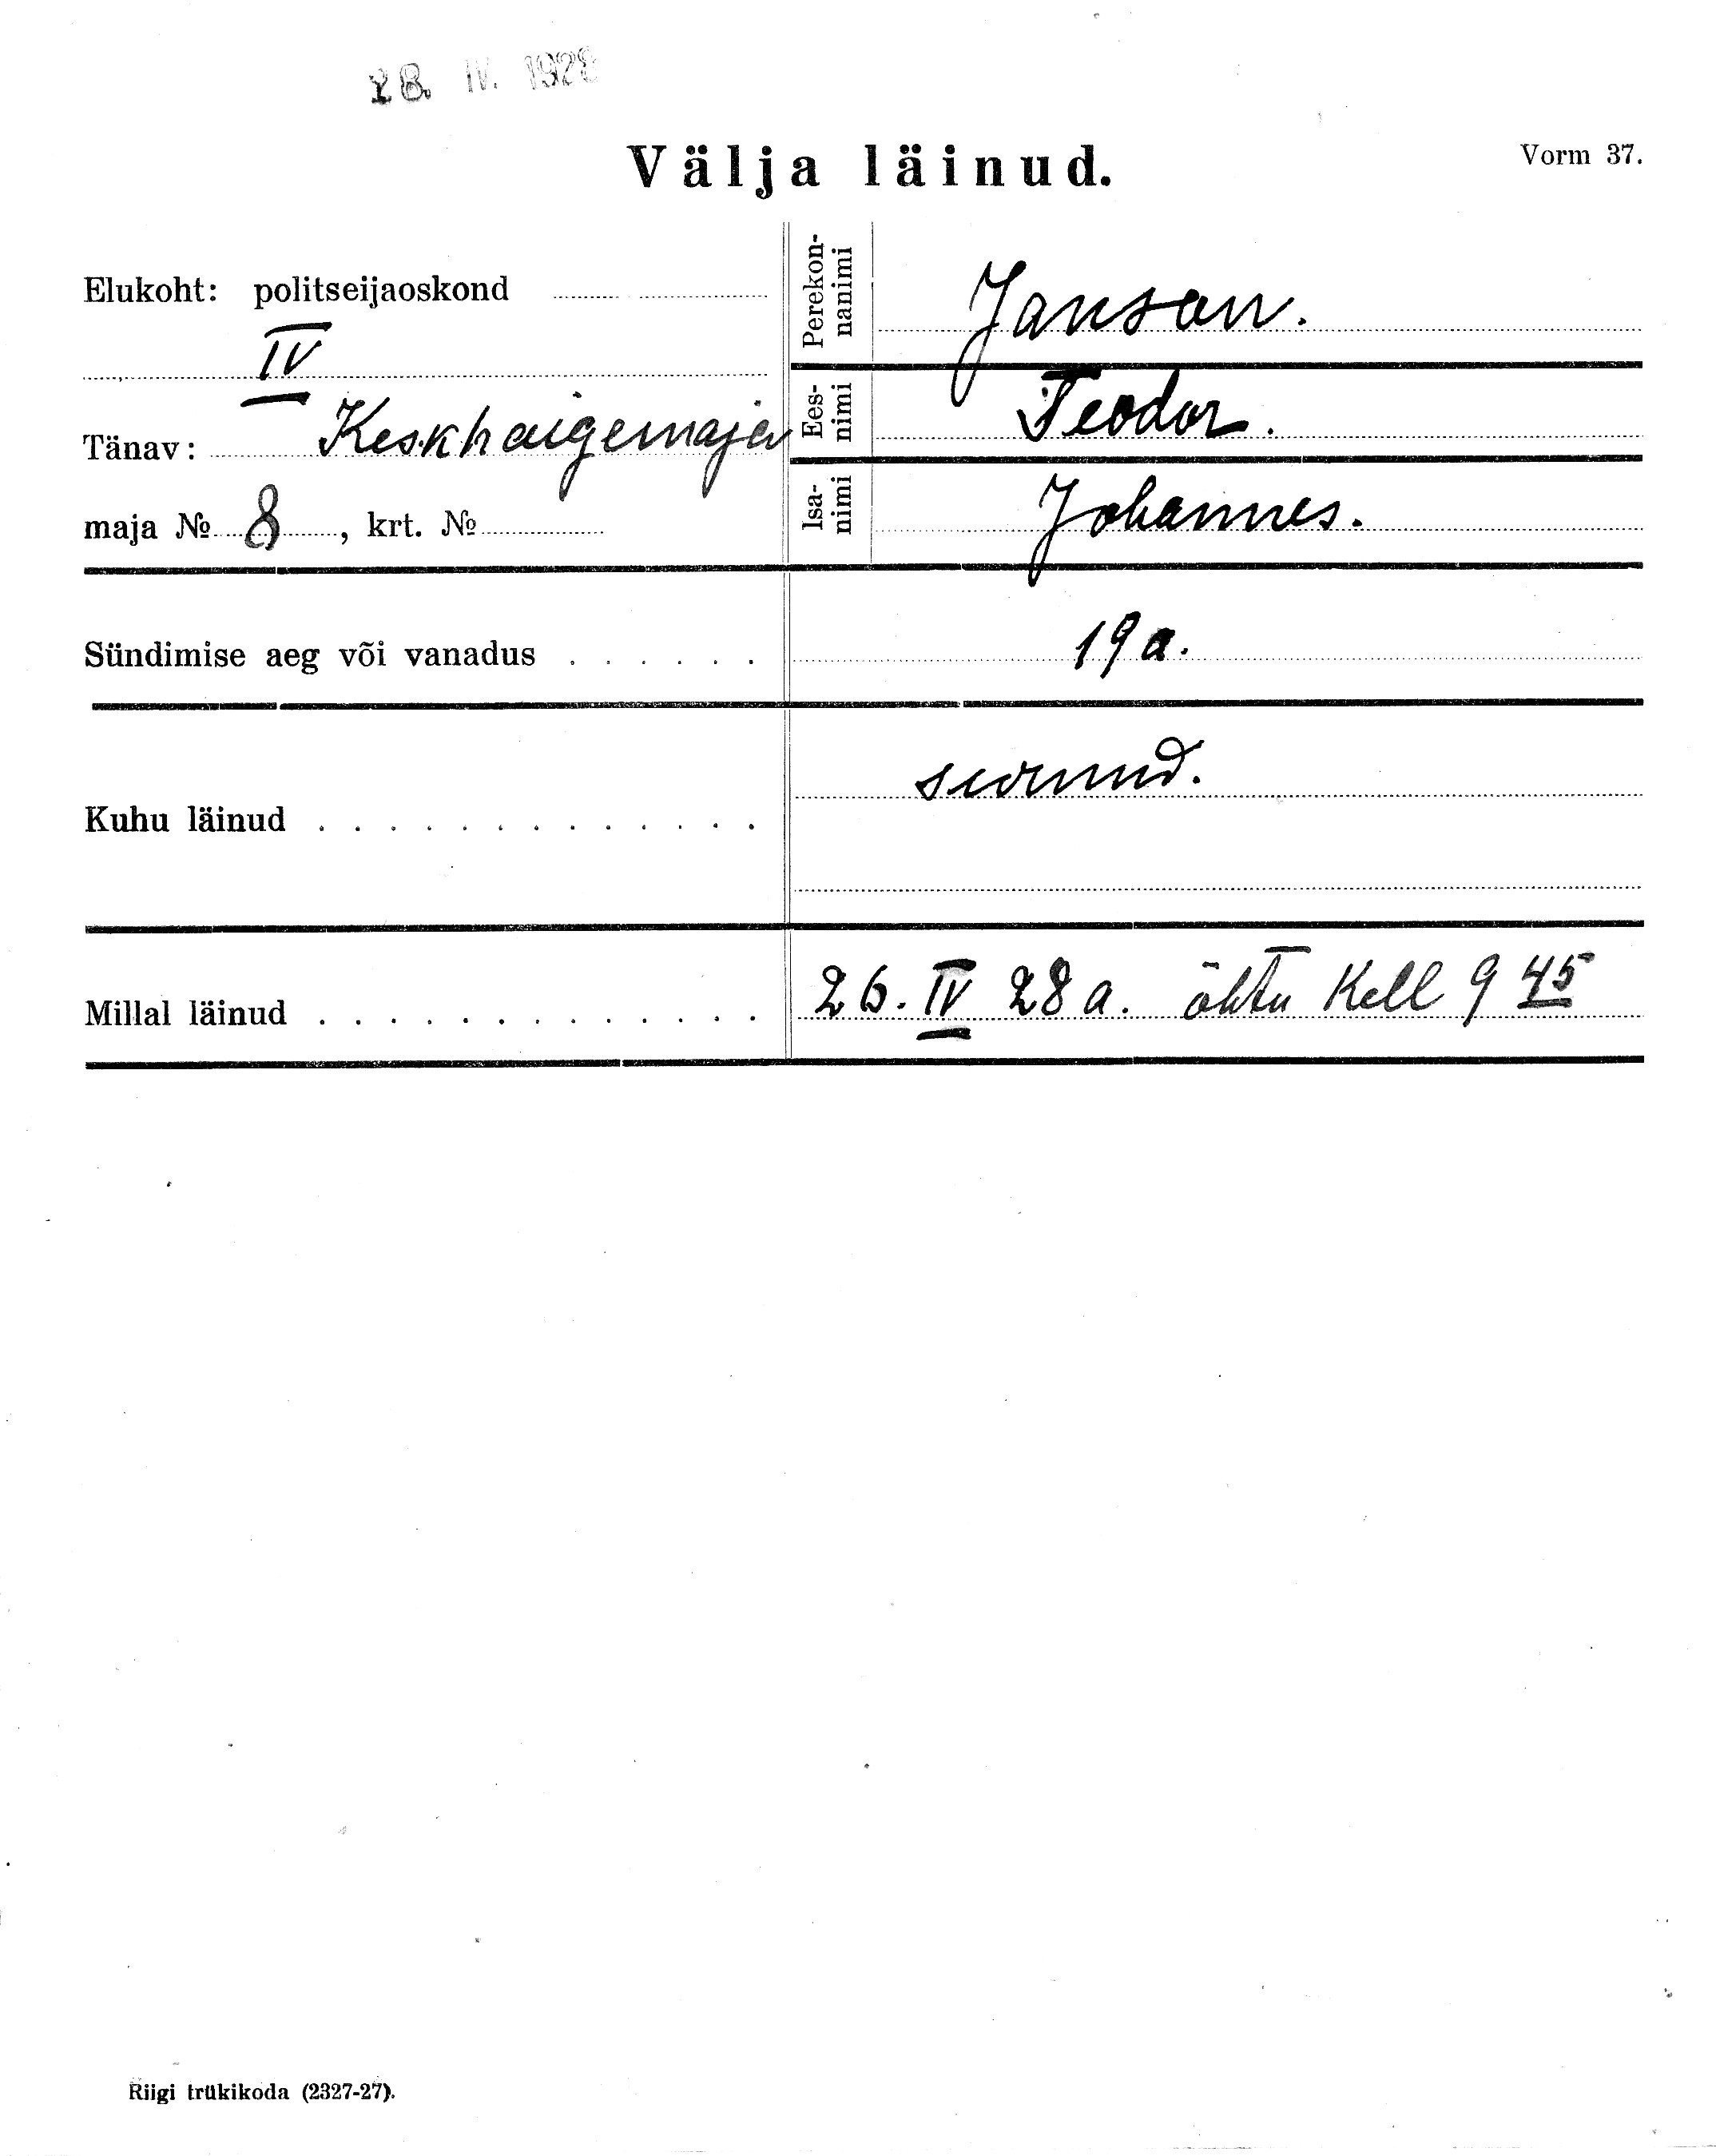 28. IV. 1928
Välja läinud.
Vorm 37.
Elukoht: politseijaoskond
IV
Tänav: Keskhaigemaja
maja № 8, krt. №
Perekon-
nanimi
Janson.
Ees-
nimi
Teodor.
Isa-
nimi
Johannes.
Sündimise aeg või vanadus . . . . . .
19 a.
Kuhu läinud . . . . . . . . . . . . .
surnud.
Millal läinud . . . . . . . . . . . . .
26. IV 28 a. õhtu Kell 9 45
Riigi trükikoda (2327-27).